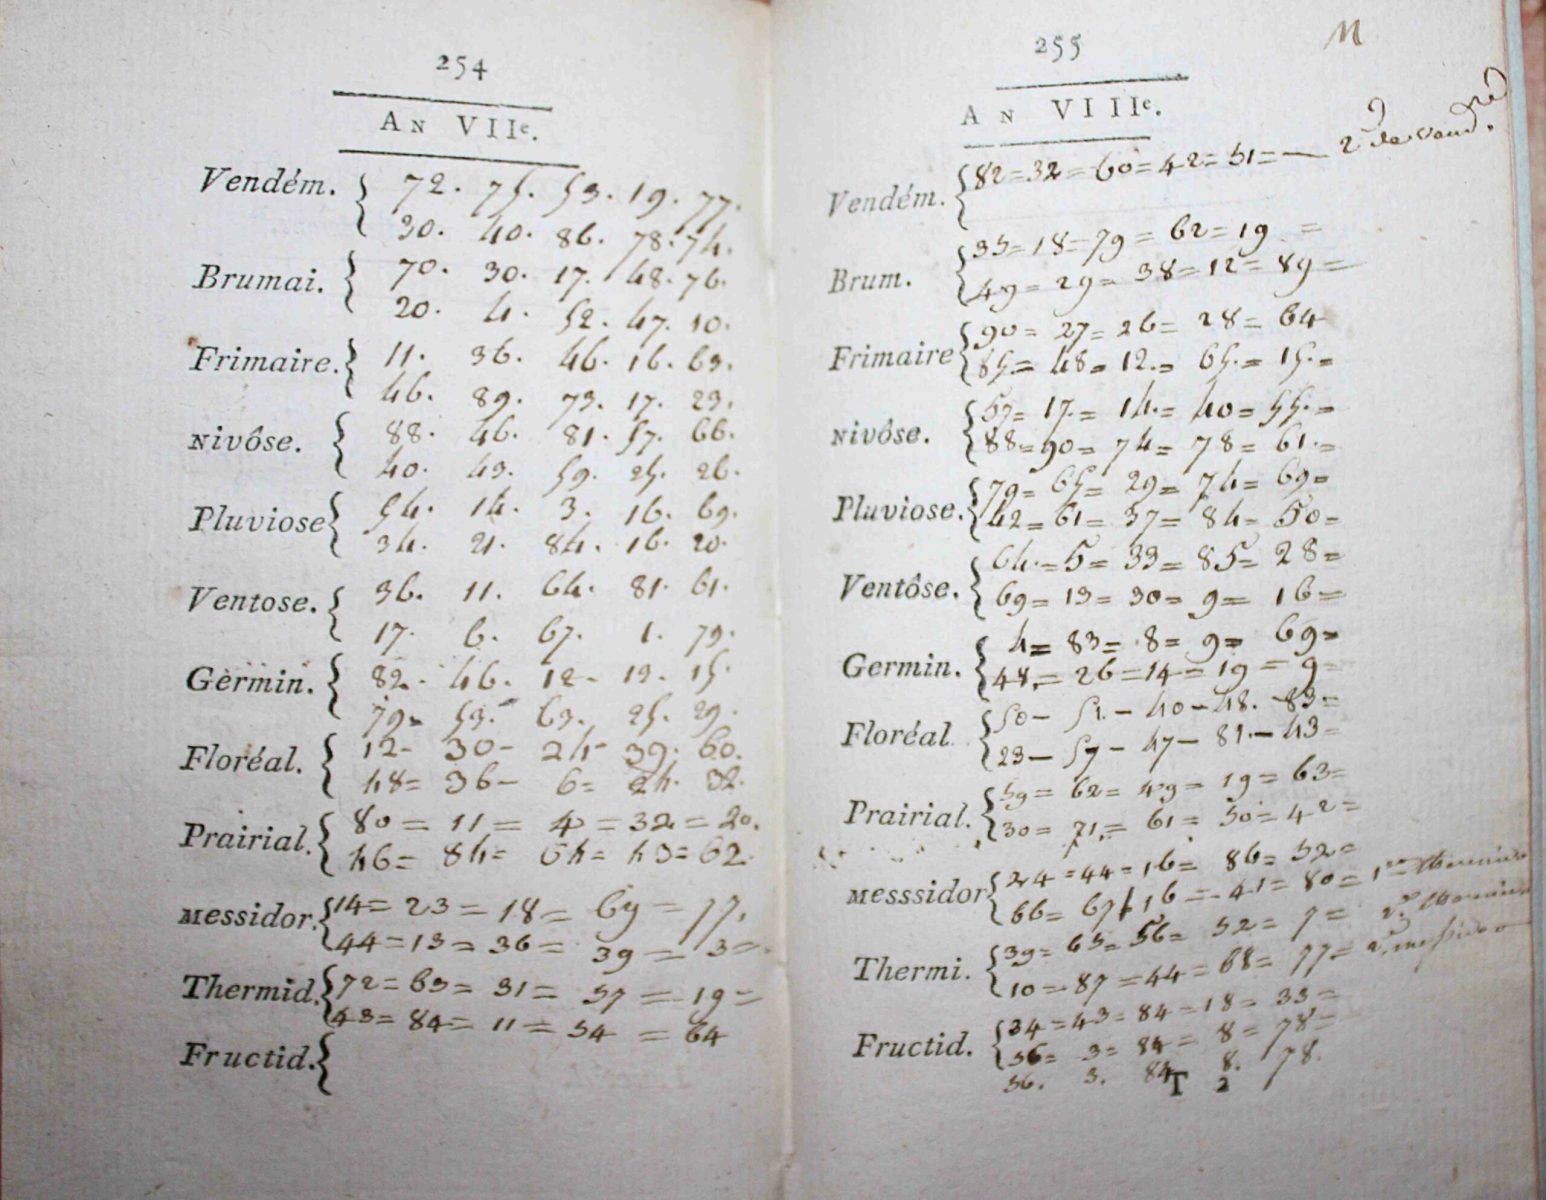 254
An VIIe.
Vendém. { 72. 75. 53. 19. 77.
30. 40. 86. 78. 74.
Brumai. { 70. 30. 17. 48. 76.
20. 4. 52. 47. 10.
Frimaire. { 11. 36. 46. 16. 63.
46. 89. 73. 17. 23.
Nivôse. { 88. 46. 81. 57. 66.
40. 43. 59. 25. 26.
Pluviose { 54. 14. 3. 16. 69.
34. 21. 84. 16. 20.
Ventose. { 36. 11. 64. 81. 61.
17. 6. 67. 1. 79.
Germin. { 82. 46. 12 - 13. 15.
79. 53. 63. 25. 29.
Floréal. { 12 - 30 - 24 - 39. 60.
48 = 36 - 6 = 24. 32.
Prairial. { 80 = 11 = 4 = 32 = 20.
46 = 84 = 64 = 43 = 62.
Messidor. { 14 = 23 = 18 = 69 = 77.
44 = 13 = 36 = 39 = 3 =
Thermid. { 72 = 63 = 31 = 57 = 19 =
43 = 84 = 11 = 54 = 64
Fructid. {
255
M
An VIIIe.
Vendém. { 82 = 32 = 60 = 42 = 51 = — 2 de vend.
Brum. { 35 = 18 = 79 = 62 = 19 =
49 = 29 = 38 = 12 = 89 =
Frimaire { 90 = 27 = 26 = 28 = 64
85. = 48 = 12. = 65. = 15. =
Nivôse. { 57 = 17. = 14. = 40 = 55. =
88 = 90 = 74 = 78 = 61. =
Pluviose. { 79 = 65 = 29 = 74 = 69 =
42 = 61 = 37 = 84 = 50 =
Ventôse. { 64. = 5 = 33 = 85 = 28 =
69 = 13 = 30 = 9 = 16 =
Germin. { 4 = 83 = 8 = 9 = 69 =
48. = 26 = 14 = 19 = 9 =
Floréal { 50 - 51. - 40 - 48. - 83 =
23 - 57 - 47 - 81. - 43 =
Prairial. { 59 = 62 = 49 = 19 = 63 =
30 = 71. = 61 = 50 = 42 =
Messsidor { 24 = 44 = 16 = 86 = 52 =
66 = 67 16 = 41 = 80 =
Thermi. { 39 = 63 = 56 = 52 = 7 =
10 = 87 = 44 = 68 = 77 = 2 messidor
Fructid. { 34 = 43 = 84 = 18 = 33 =
56 = 3 = 84 = 8 = 78 =
56. 3. 84 8. 78.
T 2